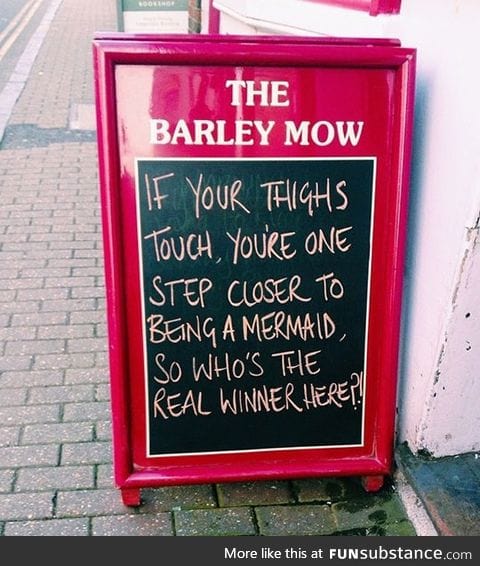 BOOKSHOP
THE
BARLEY MOW
IF YOUR THIGHS
TOUCH, YOU'RE ONE
STEP CLOSER TO
BEING A MERMAID,
SO WHO'S THE
REAL WINNER HERE?!
More like this at FUNsubstance.com